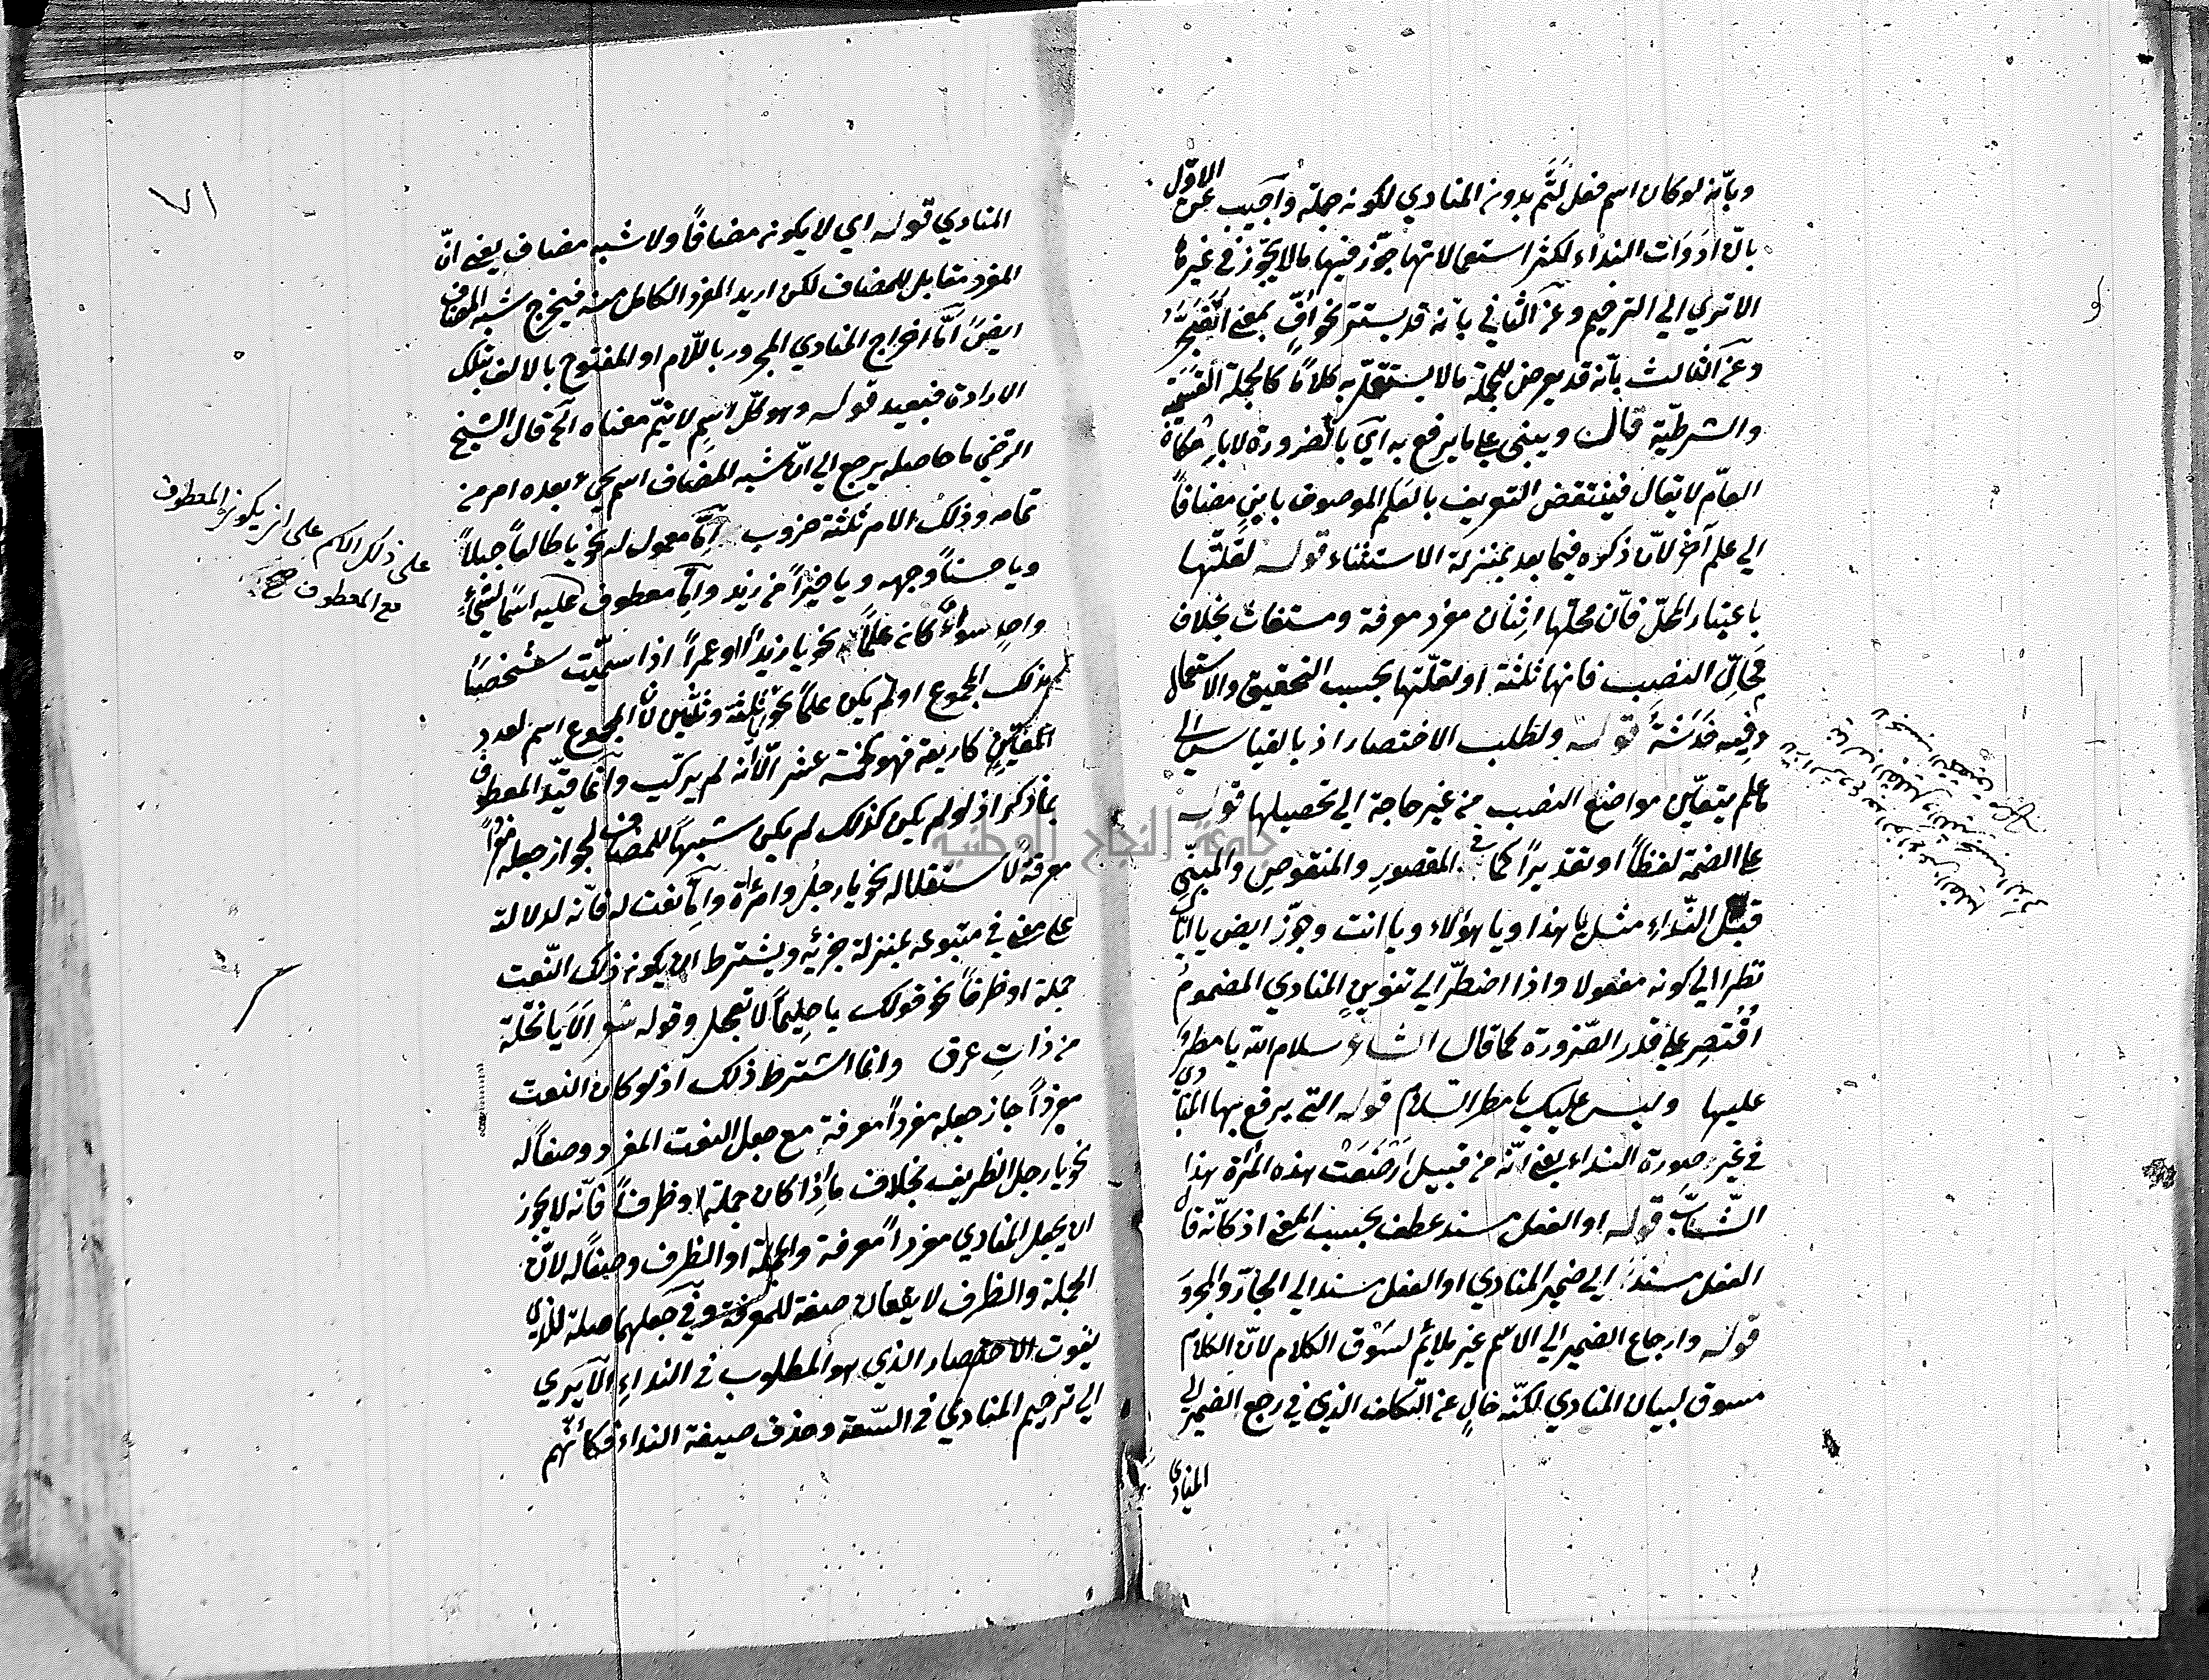 وبأنه لو كان اسم فعل لتمّ بدونه المنادي لكونه جملة وأجيب عن الاوّل
بانّ ادوات النداء لكثر استعمالاتها جوّز فيها مالا يجوز في غيرها
الا تري الي الترخيم وعن الثاني بانه قد يستتر نحو افٍّ بمعني اتضجّر
وعن الثالث بانّه قد يعرض للجملة مالا يستقلّ به كلامًا كالجملة القسميّة
والشرطيّة قال ويبنى علي ما يرفع به اي بالضرورة لا بارتكاب
العامّ لا يقال فينتقض التعريف بالعلم الموصوف بابن مضافاً
الي علم آخر لانّ ذكره فيما بعد بمنزلة الاستثناء قوله لقلّتها
باعتبار المحلّ فانّ محلّها اثنان مفرد معرفة ومستغاث بخلاف
محالّ النصب فانها ثلثة او لقلّتها بحسب التحقيق والاستعمال
وفيه خدشة قوله ولطلب الاختصار اذ بالقياس الي
ما علم يتعيّن مواضع النصب من غير حاجة الي تحصيلها قوله
علي الضمة لفظاً او تقديراً كما في المقصور والمنقوص والمبنّي
قبل النّداء مثل يا هذا ويا هؤلاء ويا انت وجوّز ايض يا ايّا
نظرا الي كونه مفعولا واذا اضطرّ الي تنوين المنادي المضموم
اقتصر علي قدر الضّرورة كما قال الشاعر سلام الله يا مطر
عليها وليس عليك يا مطر السلام قوله التي يرفع بها المنادى
في غير صورة النداء يعني انّه من قبيل ارضعت هذه المرأة هذا
الشّابّ قوله او الفعل مسند عطف بحسب المعني اذ كانّه قال
الفعل مسندًا الي ضمير المنادي او الفعل مسند الي الجارّ والمجرور
قوله وارجاع الضمير الي الاسم غير ملائم لسوق الكلام لانّ الكلام
مسوق لبيان المنادي لكنّه خالٍ عن التكلف الذي في رجع الضمير الي
المنادى
٧١
المنادي قوله اي لا يكونه مضافاً ولا شبه مضاف يعني انّ
المفرد مقابل للمضاف لكن اريد المفرد الكامل منه فيخرج شبه المضاف
ايضً امّا اخراج المنادي المجرور باللّام او المفتوح بالالف بتلك
الارادة فبعيد قوله وهو كلّ اسم لا يتمّ معناه الخ قال الشيخ
الرضي ما حاصله يرجع الي انّ شبه المضاف اسم يجيء بعده امر من
تمامه وذلك الامر ثلثة ضروب امّا معمول له نحو يا طالعاً جبلاً
ويا حسناً وجهه ويا خيراً من زيد وامّا معطوف عليه اسماً لشيءٍ
واحد سواءً كانه علماً نحو يا زيداً وعمراً اذا سميّت شخصاً
بذلك المجموع او لم يكن علماً نحو ثلثة وثلثين لانّ المجموع اسم لعدد
المعيّن كاربعة فهو كخمسة عشر الّا انه لم يركّب وانّما قيّد المعطوف
بما ذكر اذ لو لم يكن كذلك لم يكن شبهاً للمضاف لجواز جعله مفرداً
معرفةً لاستقلاله نحو يا رجل وامرأة وامّا نعت له فانّه لدلالته
علي معني في متبوعه بمنزلة جزئه ويشترط ان يكونه ذلك النّعت
جملة او ظرفاً نحو قولك يا حليماً لا تعجل وقوله شعر الا يا نخلة
من ذات عرق وانما اشترط ذلك اذ لو كان النعت
مفرداً جاز جعله مفرداً معرفة مع جعل النعت المفرد وصفاً له
نحو يا رجل الظريف بخلاف ما اذا كان جملة او ظرفاً فانّه لا يجوز
ان يجعل المنادي مفرداً معرفة والجملة او الظرف وصفاً له لانّ
الجملة والظرف لا يقعان صفة للمعرفة وفي جعلهما صلة للذي
يفوت الاختصار الذي هو المطلوب في النداء الا يري
الي ترخيم المنادي في السّعة وحذف صيغة النداء فكأنّهم
على ذلك الاسم على ان يكون المعطوف
مع المعطوف صح
جامعة النجاح الوطنية